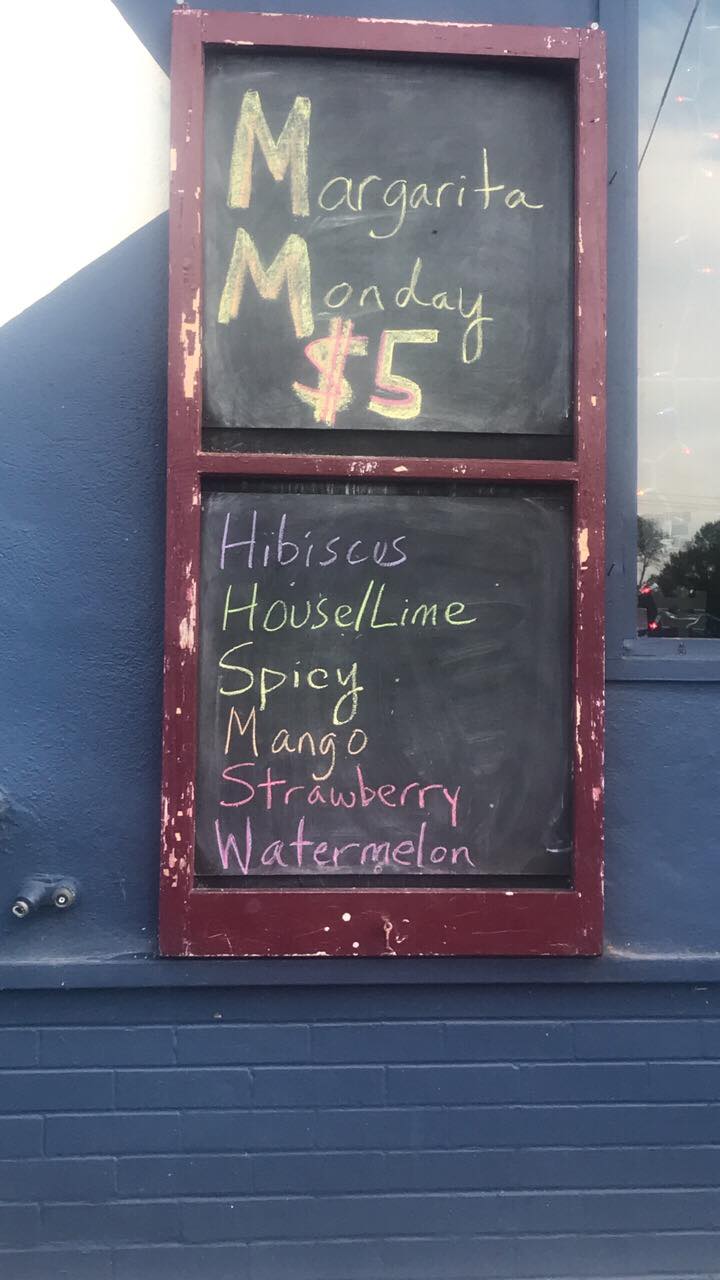 Margarita
Monday
$5
Hibiscus
House/Lime
Spicy
Mango
Strawberry
Watermelon